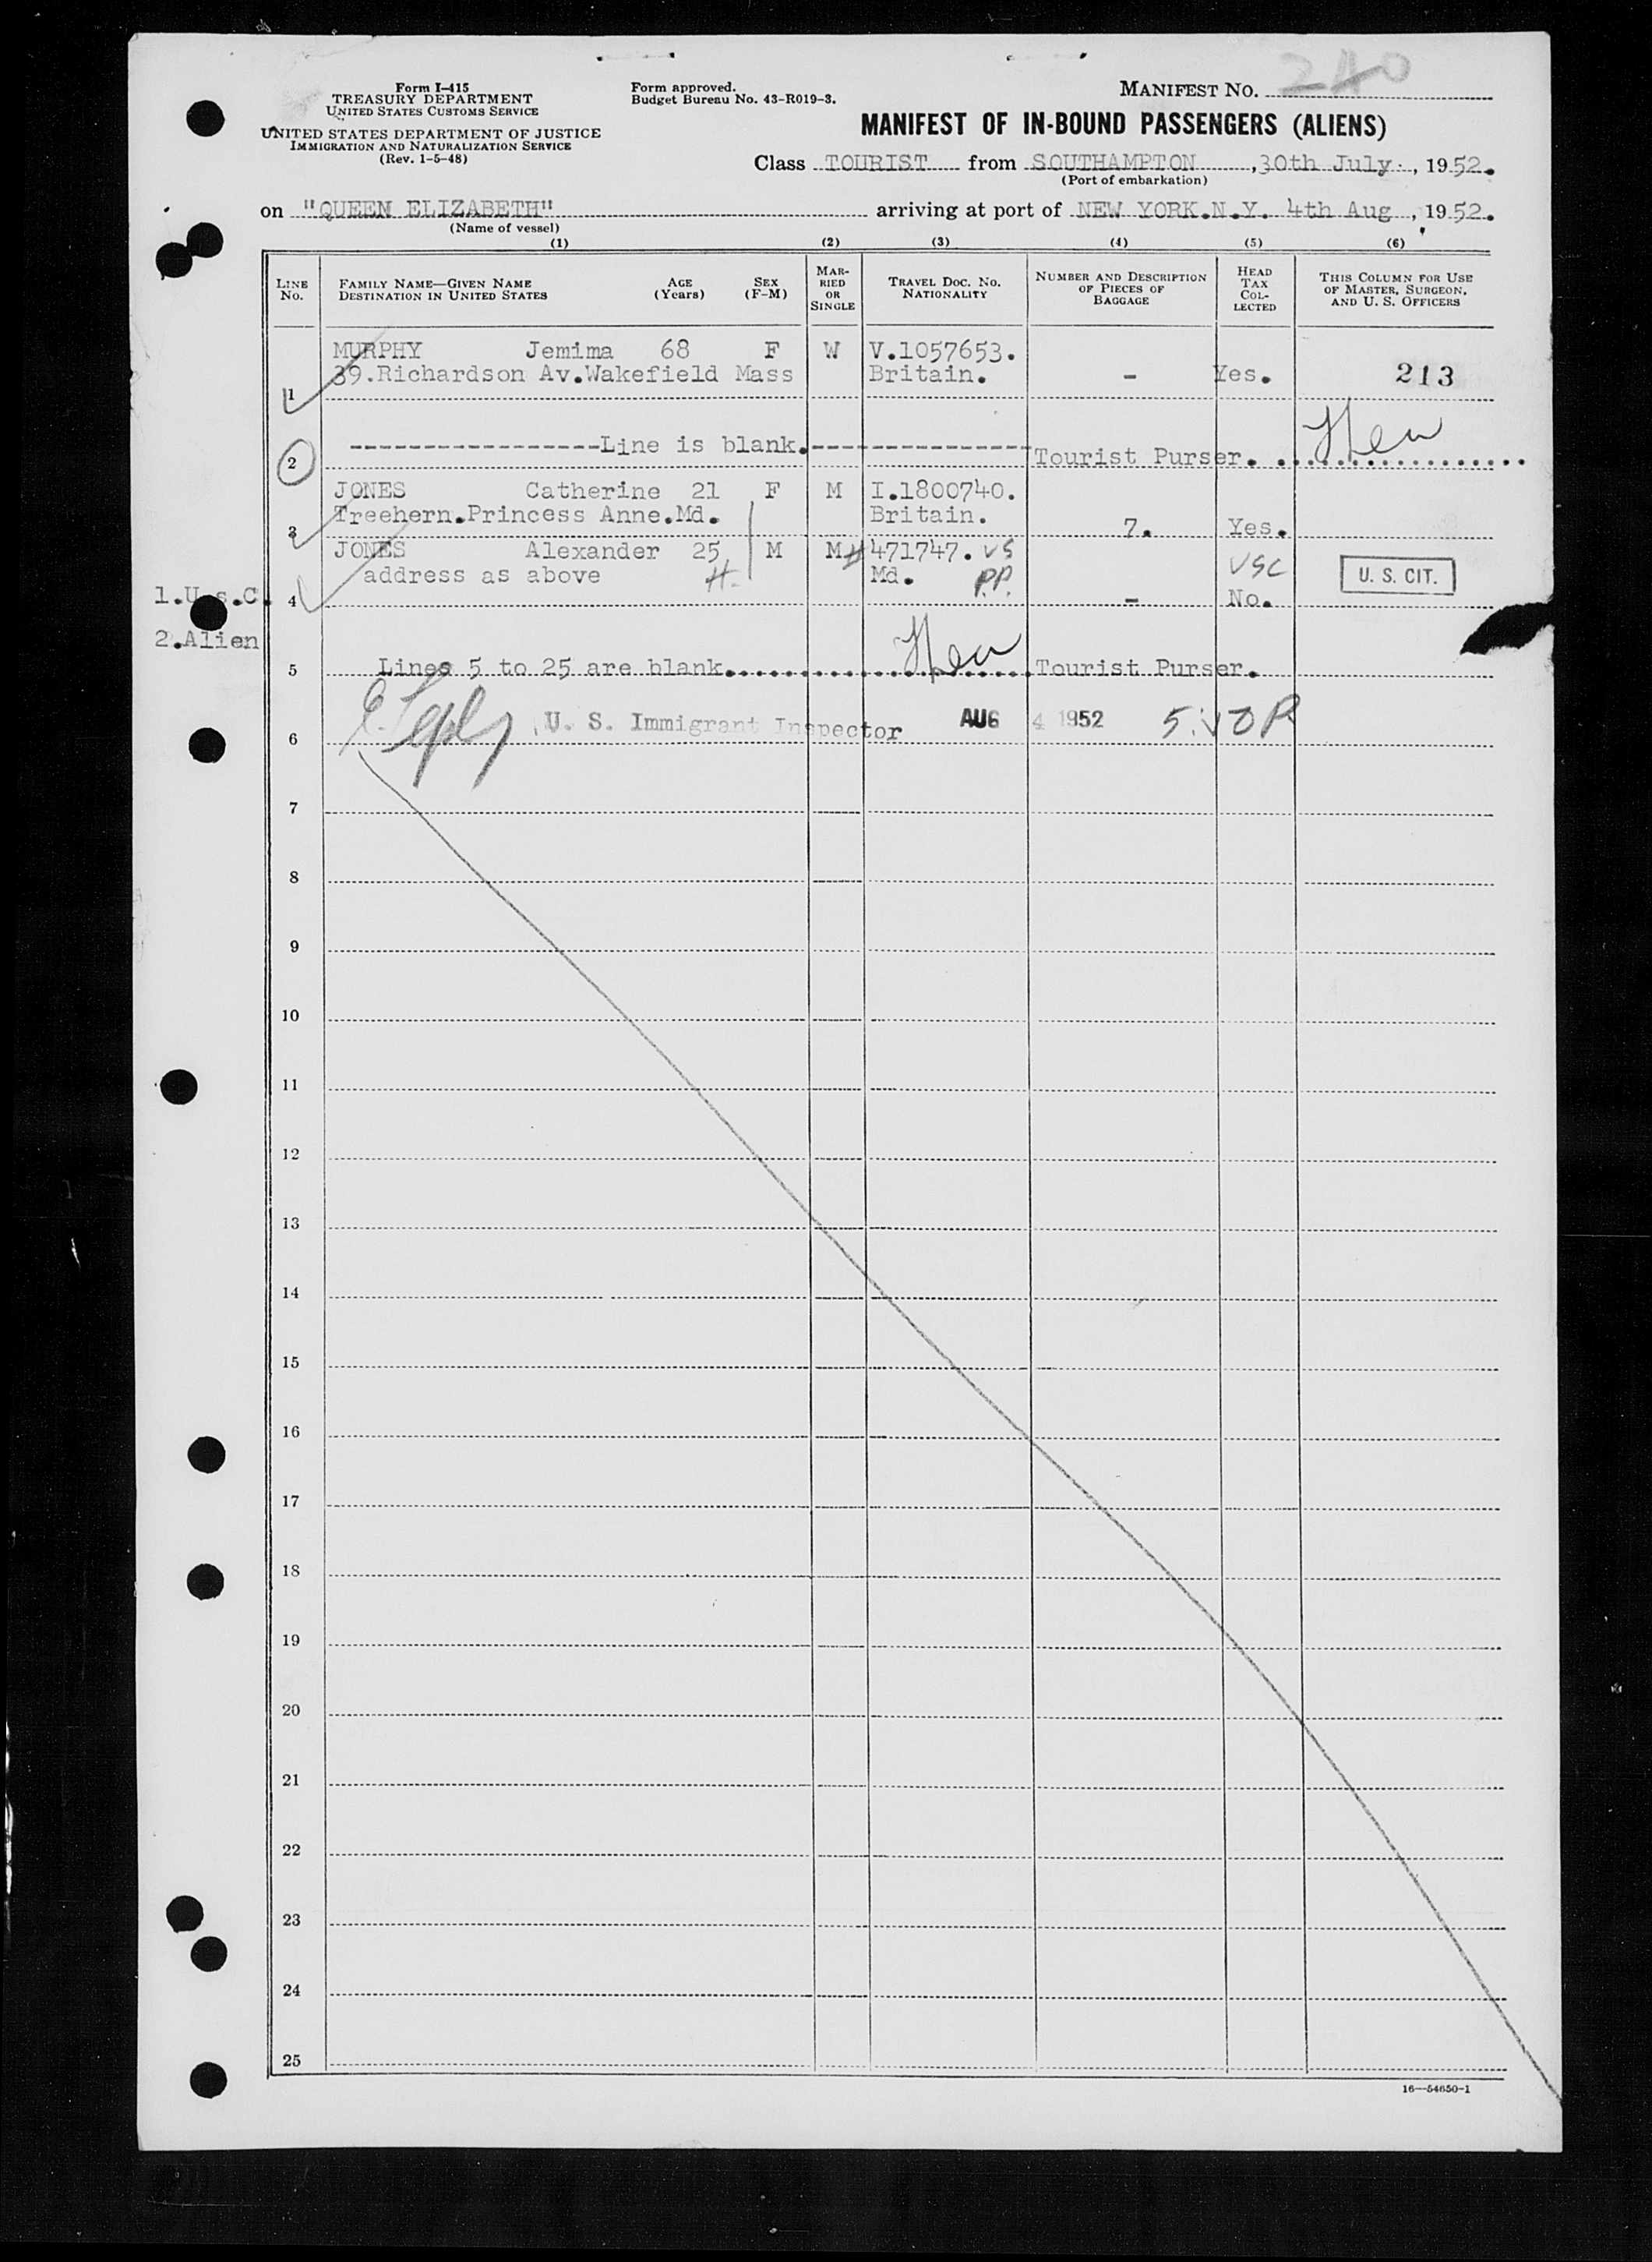 Form I-415
TREASURY DEPARTMENT
UNITED STATES CUSTOMS SERVICE
UNITED STATES DEPARTMENT OF JUSTICE
IMMIGRATION AND NATURALIZATION SERVICE
(Rev. 1-5-48)
Form approved.
Budget Bureau No. 43-R019-3.
MANIFEST NO. 240
MANIFEST OF IN-BOUND PASSENGERS (ALIENS)
Class TOURIST from SOUTHAMPTON, 30th July, 1952.
(Port of embarkation)
on "QUEEN ELIZABETH" arriving at port of NEW YORK.N.Y. 4th Aug, 1952.
(Name of vessel)
(1) (2) (3) (4) (5) (6)
LINE No.
FAMILY NAME—GIVEN NAME
DESTINATION IN UNITED STATES
AGE (Years)
SEX (F-M)
MARRIED OR SINGLE
TRAVEL DOC. NO. NATIONALITY
NUMBER AND DESCRIPTION OF PIECES OF BAGGAGE
HEAD TAX COLLECTED
THIS COLUMN FOR USE OF MASTER, SURGEON, AND U. S. OFFICERS
MURPHY Jemima 68 F W V.1057653.
1 39.Richardson Av.Wakefield Mass Britain. - Yes. 213
2 ----------------Line is blank.-------------- Tourist Purser. ..................
JONES Catherine 21 F M I.1800740.
3 Treehern.Princess Anne.Md. Britain. 7. Yes.
JONES Alexander 25 M M 471747. US
address as above Md. P.P. USC U. S. CIT.
1.U.s.C. 4 - No.
2.Alien
5 Lines 5 to 25 are blank.................... Tourist Purser.
6 U. S. Immigrant Inspector AUG 4 1952
7
8
9
10
11
12
13
14
15
16
17
18
19
20
21
22
23
24
25
16—54650-1